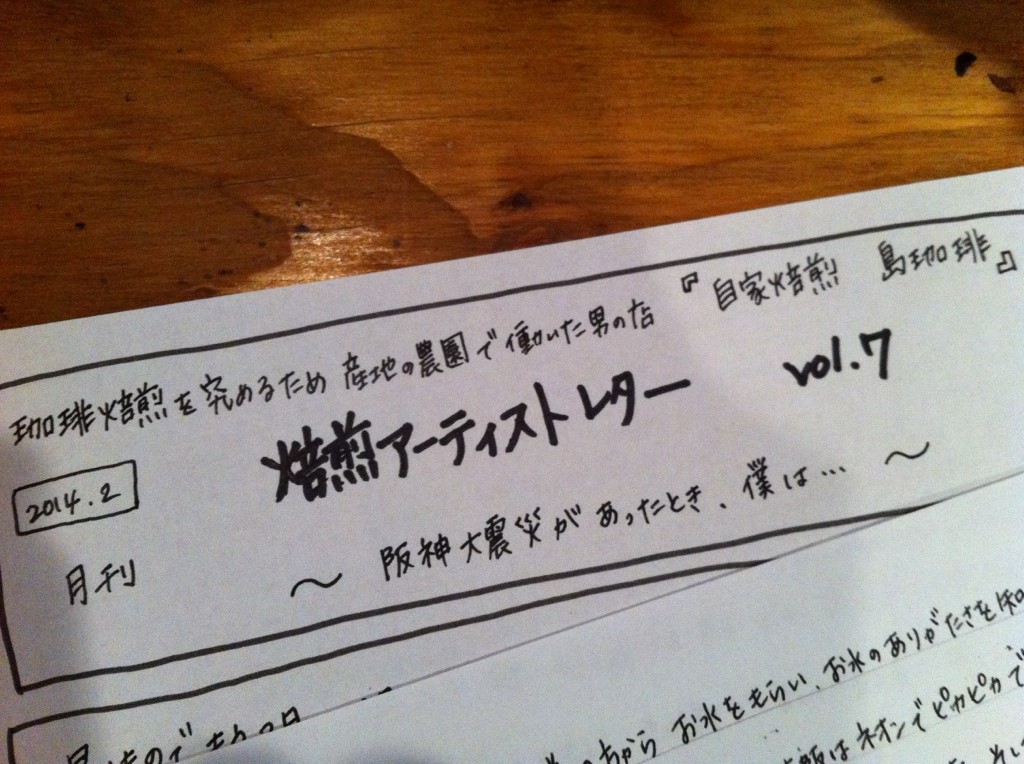 珈琲焙煎を究めるため 産地の農園で働いた男の店 『自家焙煎 島珈琲』
焙煎アーティストレター vol.7
2014.2
月刊
～ 阪神大震災があったとき、僕は… ～
ちから お水をもらい、お水のありがたさを知
はネオンでピカピカで